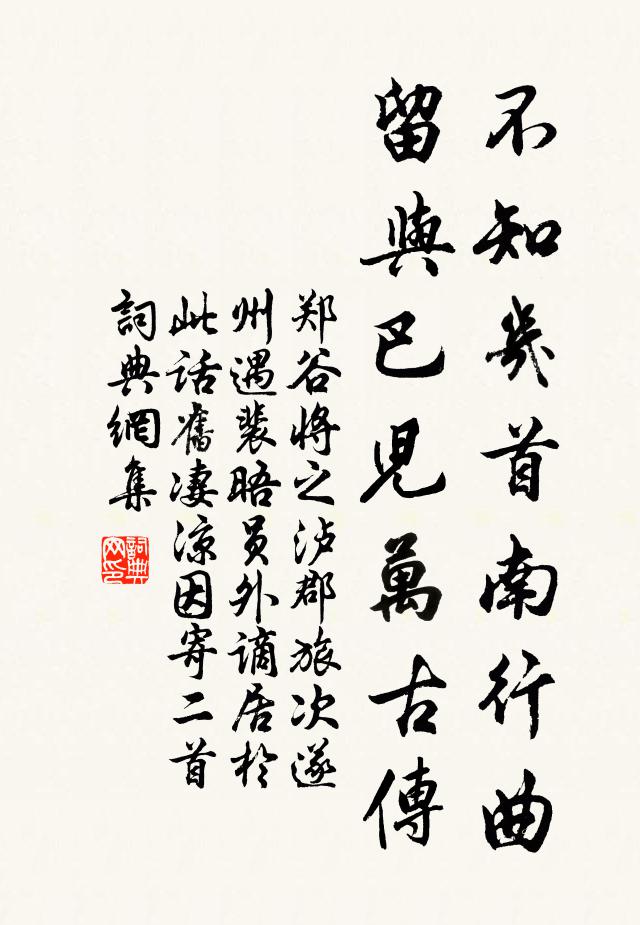 不知幾首南行曲
留與巴兒萬古傳
郑谷將之泸郡旅次遂
州遇裴晤員外谪居於
此话舊凄凉因寄二首
詞典網集
詞典
网印